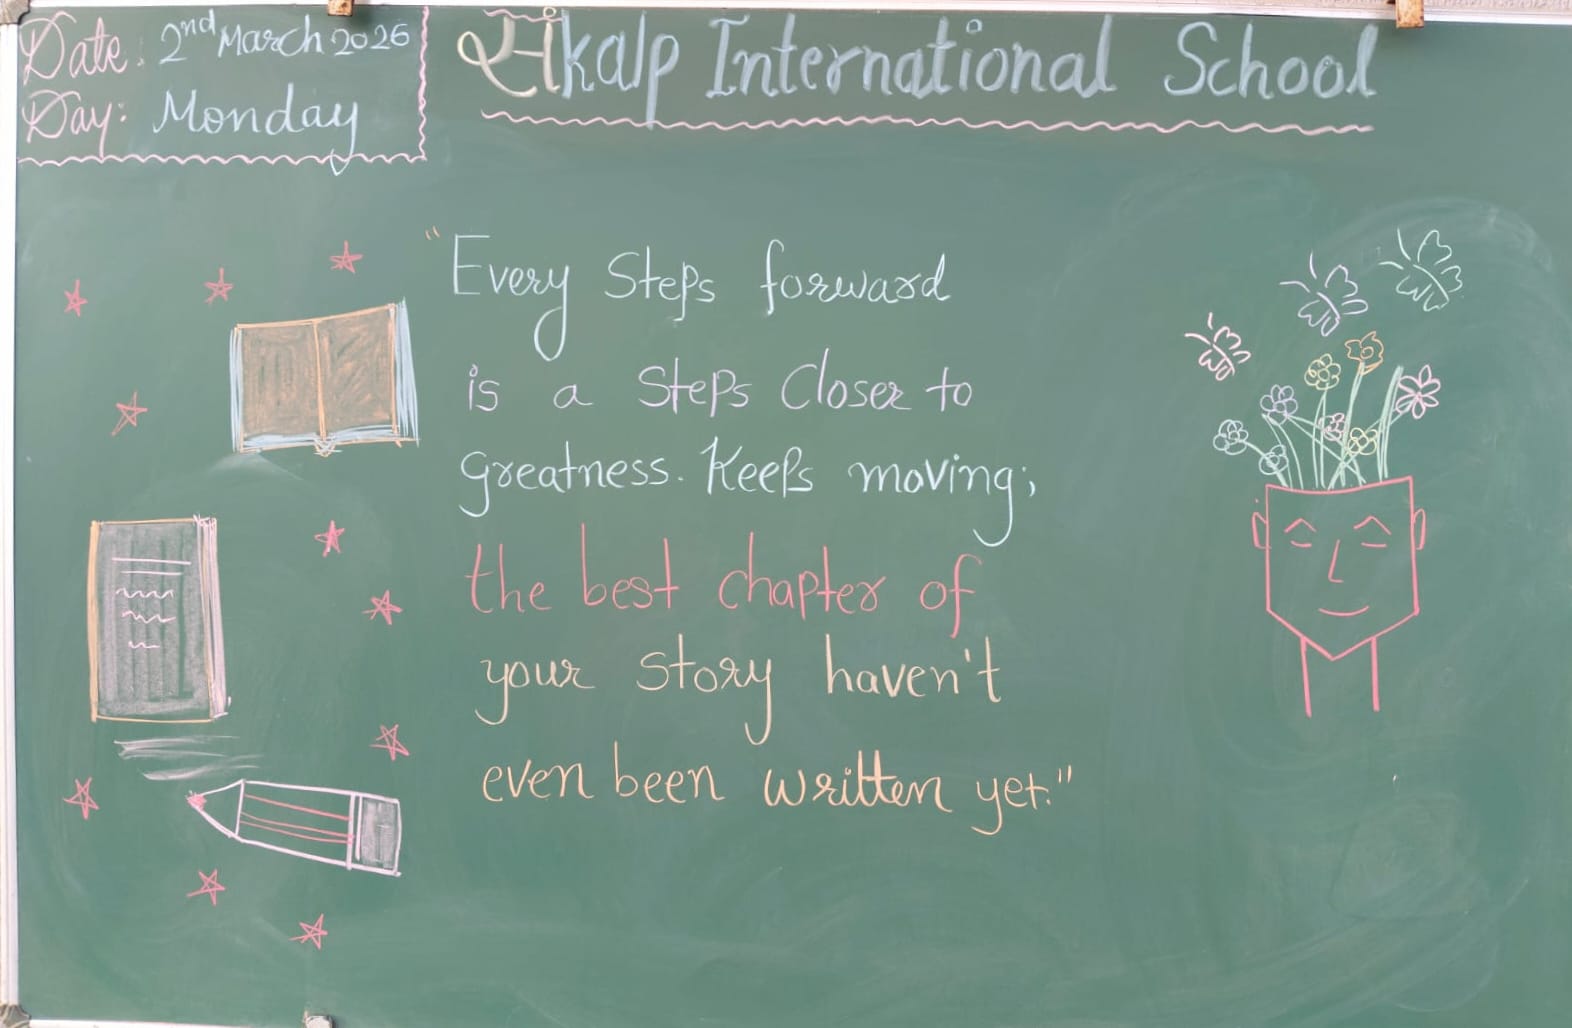 Date: 2nd March 2026
Day: Monday
संkalp International School
"Every Steps forward
is a Steps Closer to
greatness. Keeps moving;
the best chapter of
your story haven't
even been written yet."